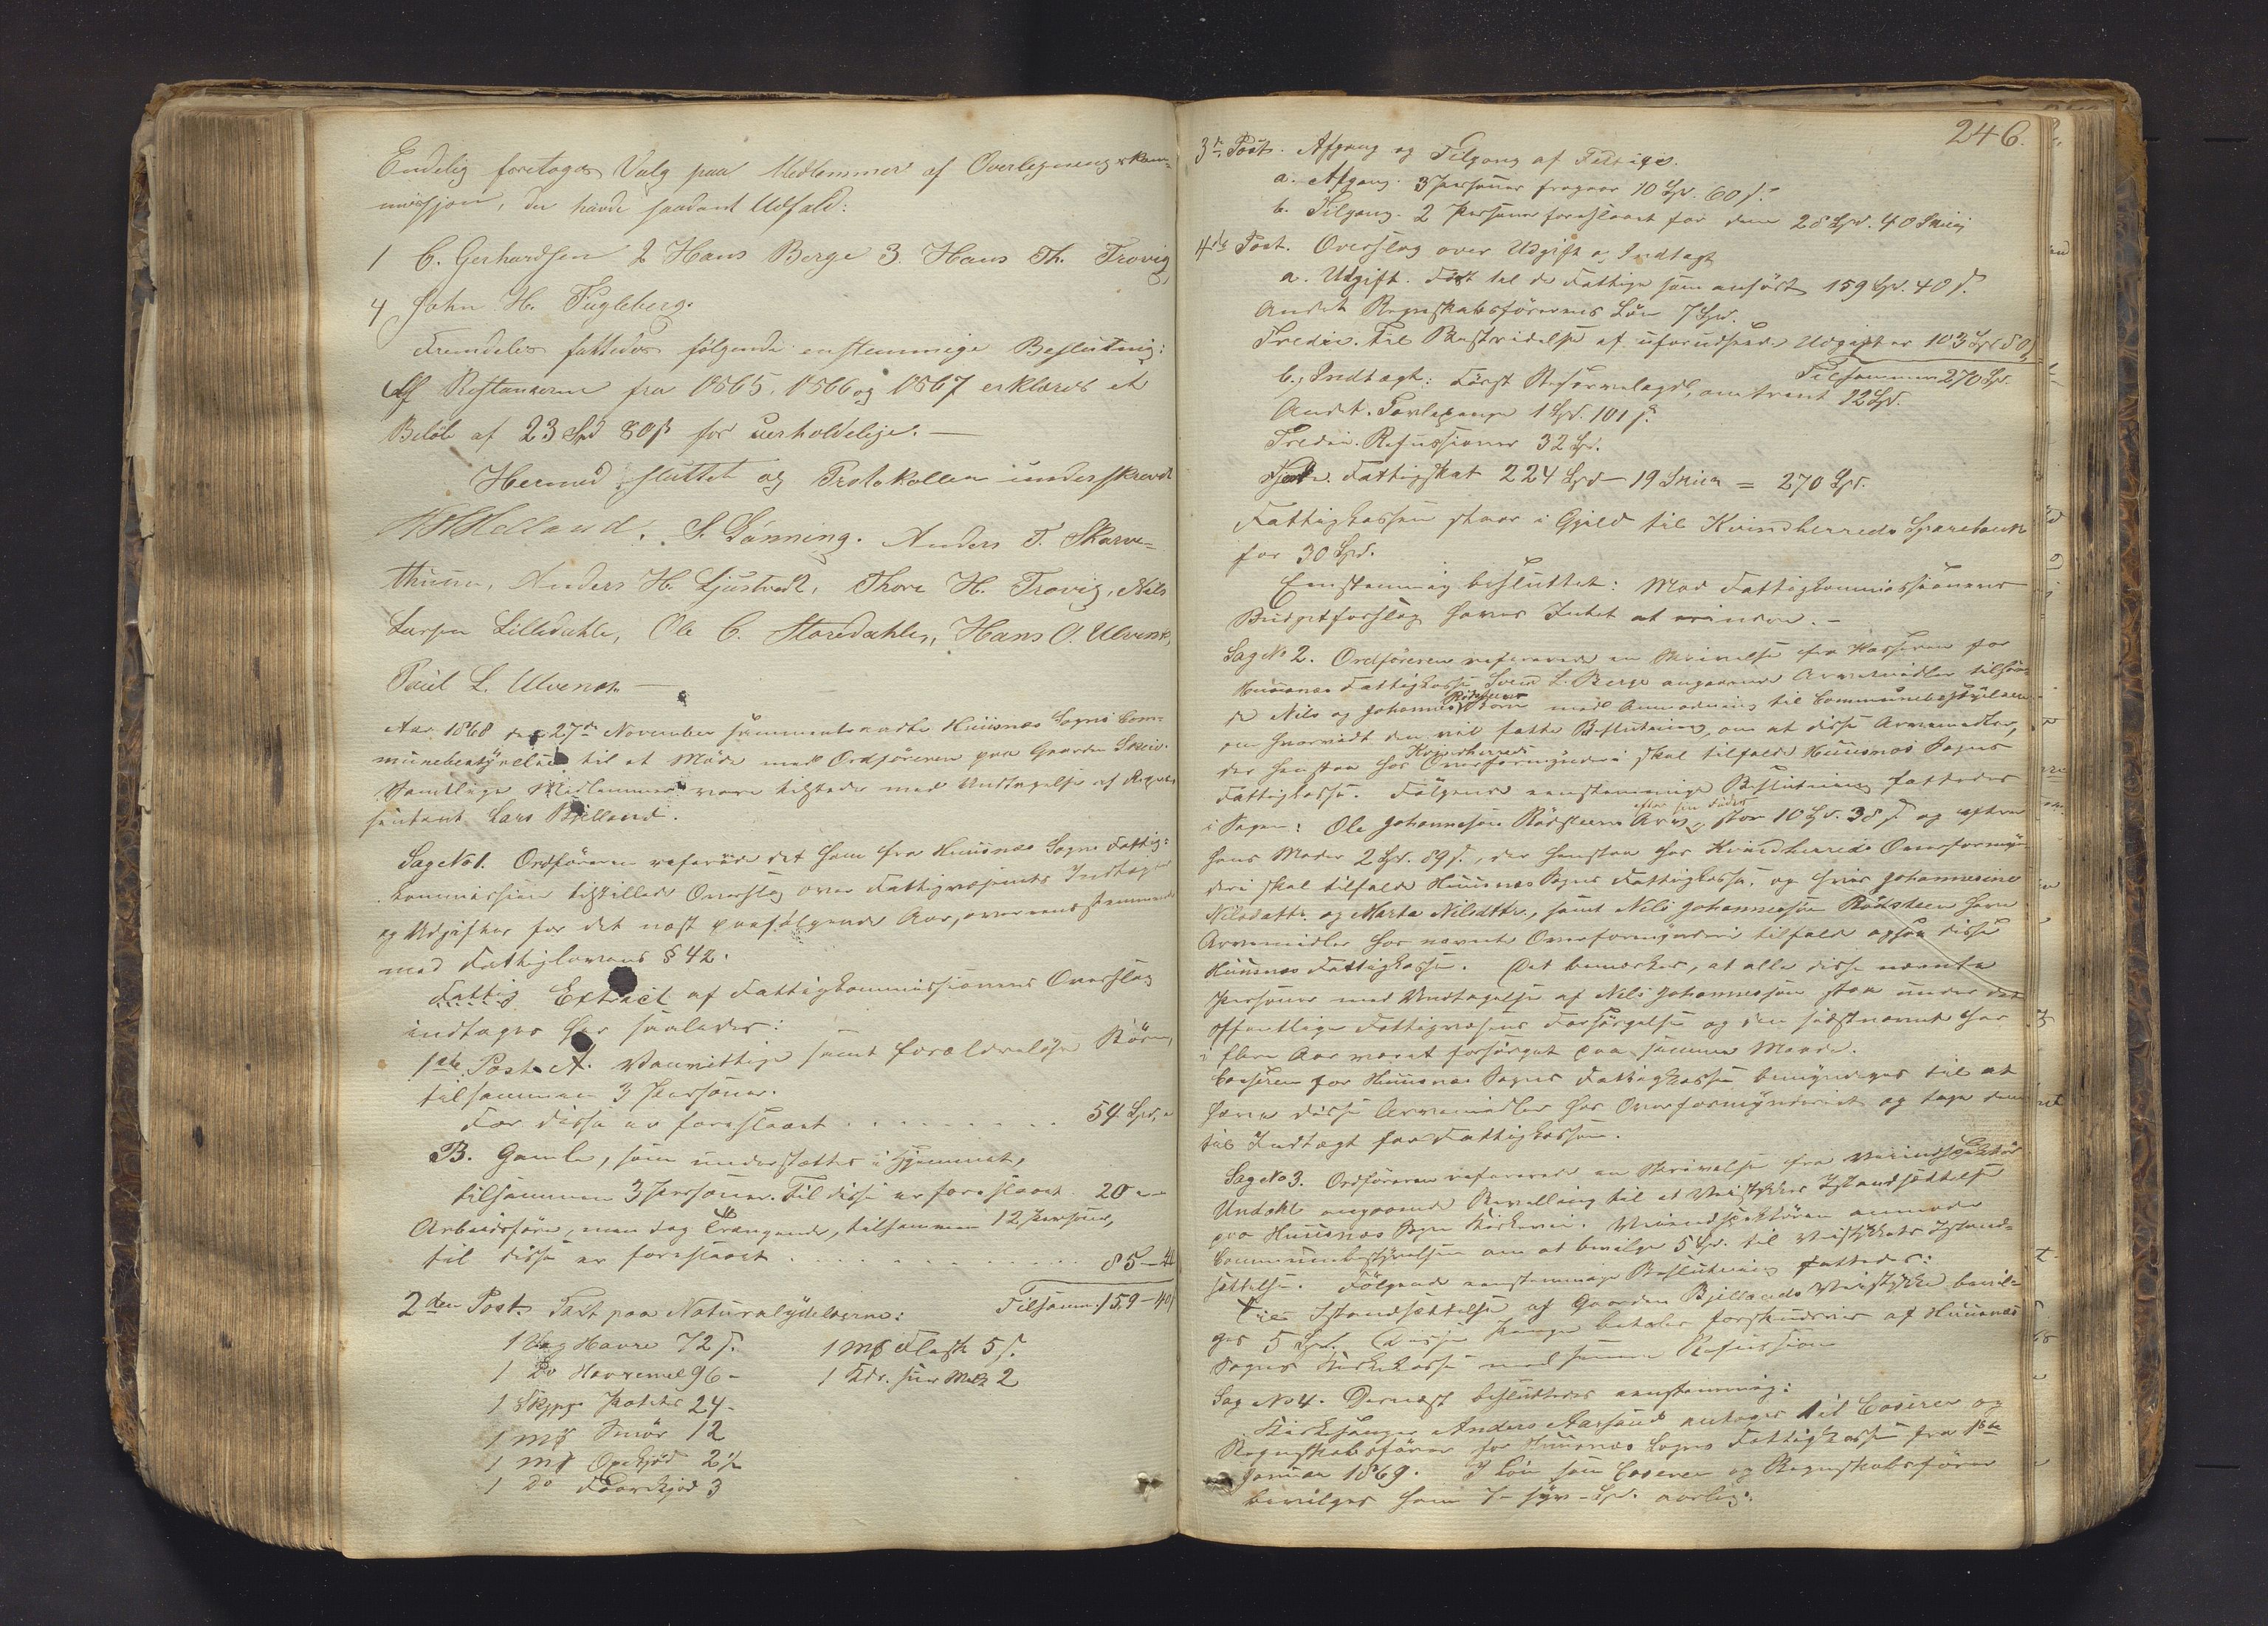 Endelig foretoges Valg paa Medlemmer af Overlegningskom-
missjon, der havde saadant Udfald:
1 C. Gerhardsen 2 Hans Berge 3. Hans Th. Trovig
4 John H. Fugleberg.
Fremdeles fattedes følgende enstemmige Beslutning:
Af Restanserne fra 1865, 1866 og 1867 erklæres et
Beløb af 23 Spd 80 ß for uerholdelige. —
Hermed sluttet og Protokollen underskrevet
Helland. S. Lønning. Anders T. Skarve-
thuun, Anders H. Ljustvedt, Thore H. Trovig, Nils
Larsen Lilledahle, Ole C. Storedahle, Hans O. Ulvenæs,
Paul L. Ulvenæs —
Aar 1868 den 27de November sammentraadte Huusnæs Sogns Com-
munebestyrelse til et Møde med Ordføreren paa Gaarden
Samtlige Medlemmer vare tilstede med Undtagelse af Repræ
sentant Lars Bjelland.
Sag No 1. Ordføreren refererede det ham fra Huusnæs Sogns Fattig-
kommission tilstillede Overslag over Fattigvæsenets Indtægter
og Udgifter for det næst paafølgende Aar, overeensstemmende
med Fattiglovens § 42.
Fattig Extract af Fattigkommissionens Overslag
indtages her saaledes:
1ste Post. A. Vanvittige samt forældreløse Børn,
tilsammen 3 Personer.
For disse er foreslaaet . . . . . . . . 54 Spd,
B. Gamle, som understøttes i Hjemmet,
tilsammen 3 Personer. Til disse er foreslaaet 20 "-"
Arbeidsføre, men dog Trængende, tilsammen 12 Personer,
til disse er foreslaaet . . . . . . . . . . . . 85-40
2den Post. Taxt paa Naturalydelserne: Tilsamm. 159-40
1 Vog Havre 72 ß. 1 Mk Flesk 5 ß.
1 Do Havremel 96 - 1 Kdr. suur Melk 2
1 Skjpp. Poteter 24 -
1 Mk Smør 12
1 Mk Oxekjød 2½
1 Do Faarekjød 3
246.
3die Post. Afgang og Tilgang af Fattige.
a. Afgang. 3 Personer fragaar 10 Spd. 60 ß.
b. Tilgang. 2 Personer foreslaaet for dem 28 Spd. 40 Skill
4de Post. Overslag over Udgift og Indtægt
a. Udgift. Først til de Fattige som anført 159 Spd. 40 ß.
Andet Regnskabsførerens Løn 7 Spd.
Tredie. Til Bestridelse af uforudseede Udgifter 103 Spd 80
Tilsammen 270 Spd.
b., Indtægt: Først omtrent 12 Spd.
Andet. 1 Spd. 101 ß.
Tredie. Refusioner 32 Spd.
Fjerde. Fattigskat 224 Spd - 19 Skill = 270 Spd.
Fattigkassen staar i Gjæld til Kvindherreds Sparebank
for 30 Spd.
Eenstemmig besluttet: Mod Fattigkommissionens
Budgetforslag haves Intet at erindre. —
Sag No 2. Ordføreren refererede en Skrivelse fra Kasseren for
Huusnæs Fattigkasse Svend L. Berge angaaende Arvemidler tilhøren-
de Nils og Johannes Rødsteens Børn med Anmodning til Communebestyrelsen
om hvorvidt den vil fatte Beslutning om at disse Arvemidler,
der henstaa hos Kvindherreds Overformynderi skal tilfalde Huusnæs Sogns
Fattigkasse. Følgende eenstemmige Beslutning fattedes
i Sagen: Ole Johannesen Rødsteens Arv efter sin Fader, stor 10 Spd. 38 ß og efter
hans Moder 2 Spd. 89 ß., der henstaa hos Kvindherreds Overformyn-
deri skal tilfalde Huusnæs Sogns Fattigkasse, og hvis Johannesine
Nilsdatter og Marta Nilsdttr., samt Nils Johannessøn Rødsteen have
Arvemidler hos nævnte Overformynderi tilfalde ogsaa disse
Huusnæs Fattigkasse. Det bemærkes, at alle disse nævnte
Personer med Undtagelse af Nils Johannessøn staa under det
offentlige Fattigvæsens Forsørgelse og den sidstnævnte har
i flere Aar været forsørget paa samme Maade.
Casseren for Huusnæs Sogns Fattigkasse bemyndiges til at
hæve disse Arvemidler hos Overformynderiet og tage dem
til Indtægt for Fattigkassen.
Sag No 3. Ordføreren refererede en Skrivelse fra Veiinspektør
Undahl angaaende Bevilling til et Veistykkes Istandsættelse
paa Huusnæs Sogns Kirkevei. Veiinspektøren anmoder
Communebestyrelsen om at bevilge 5 Spd. til Veistykkets Istand-
sættelse. Følgende eenstemmige Beslutning fattedes:
Til Istandsættelse af Gaarden Bjellands Veistykke bevil-
ges 5 Spd. Disse Penge betales forskudsvis af Huusnæs
Sogns Kirkekasse mod senere Refusion
Sag No 4. Dernæst besluttedes eenstemmig:
Kirkesanger Anders Aarsand antages til Casserer og
Regnskabsfører for Huusnæs Sogns Fattigkasse fra 1ste
Januar 1869. I Løn som Casserer og Regnskabsfører
bevilges ham 7 - syv - Spd. aarlig.